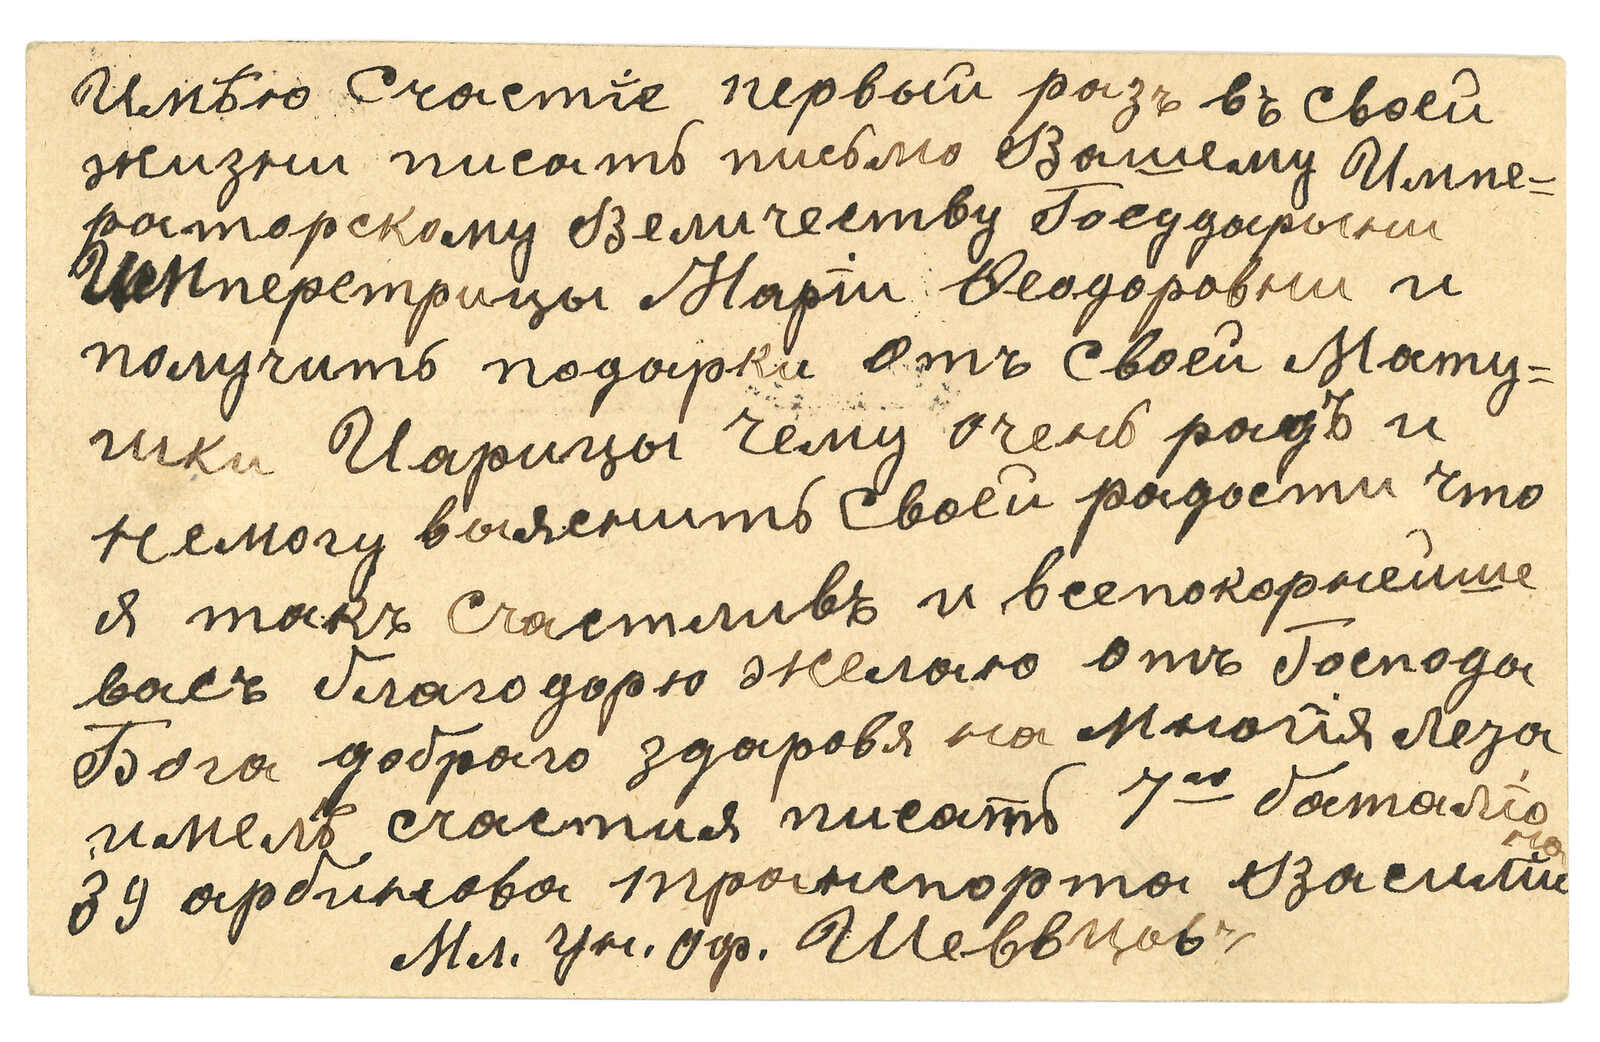 Имѣю Счастіе первый разъ въ своей
жизни писать письмо Вашему Импе=
раторскому Величеству Государыни
Имперетрицы Маріи Феодоровни и
получить подарки отъ своей Мату=
шки Царицы чему очень радъ и
немогу выяснить своей радости что
я такъ счастливъ и всепокорнейше
васъ благодарю желаю отъ Господа
Бога добраго здаровя на многія леза
имелъ счастия писать 7го баталіо
на
39 арбинова транспорта Василій
Мл. Ун. Оф. Шеввцовъ